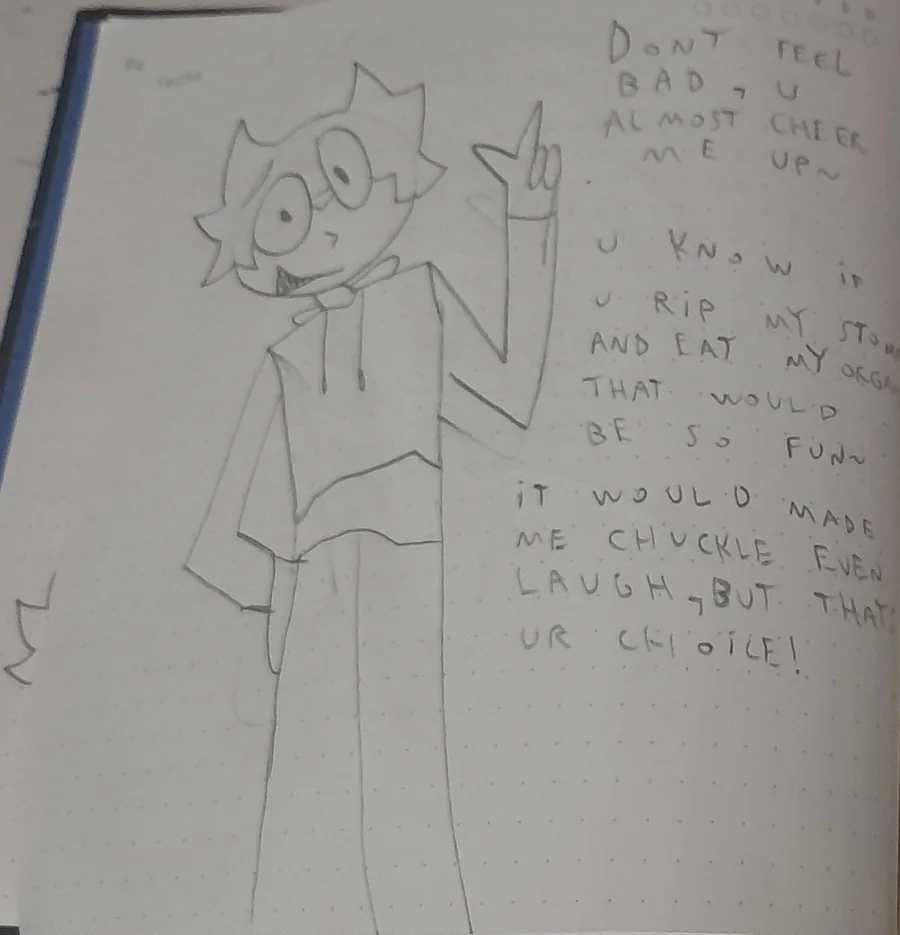 DONT FEEL
BAD, U
ALMOST CHEER
ME UP~
U KNOW IF
U RiP MY
AND EAT MY
THAT WOULD
BE SO FUN~
iT WOULD MADE
ME CHUCKLE EVEN
LAUGH, BUT THAT
UR CHOICE!